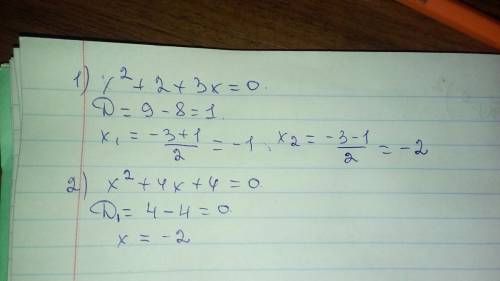 1) x² + 2 + 3x = 0.
D = 9 - 8 = 1.
x₁ = (-3+1)/2 = -1; x₂ = (-3-1)/2 = -2
2) x² + 4x + 4 = 0.
D₁ = 4 - 4 = 0.
x = -2